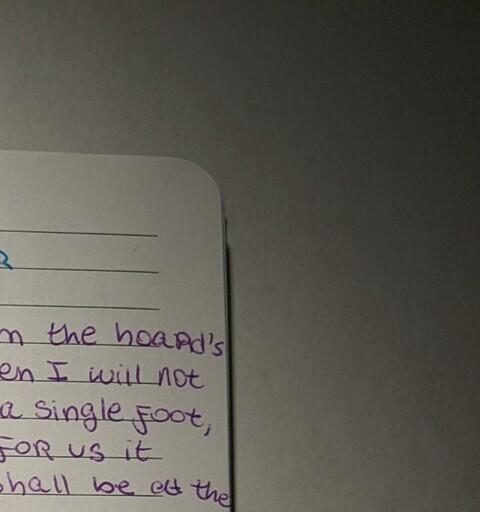 R
m the hoard's
en I will not
a single foot,
for us it
shall be at the